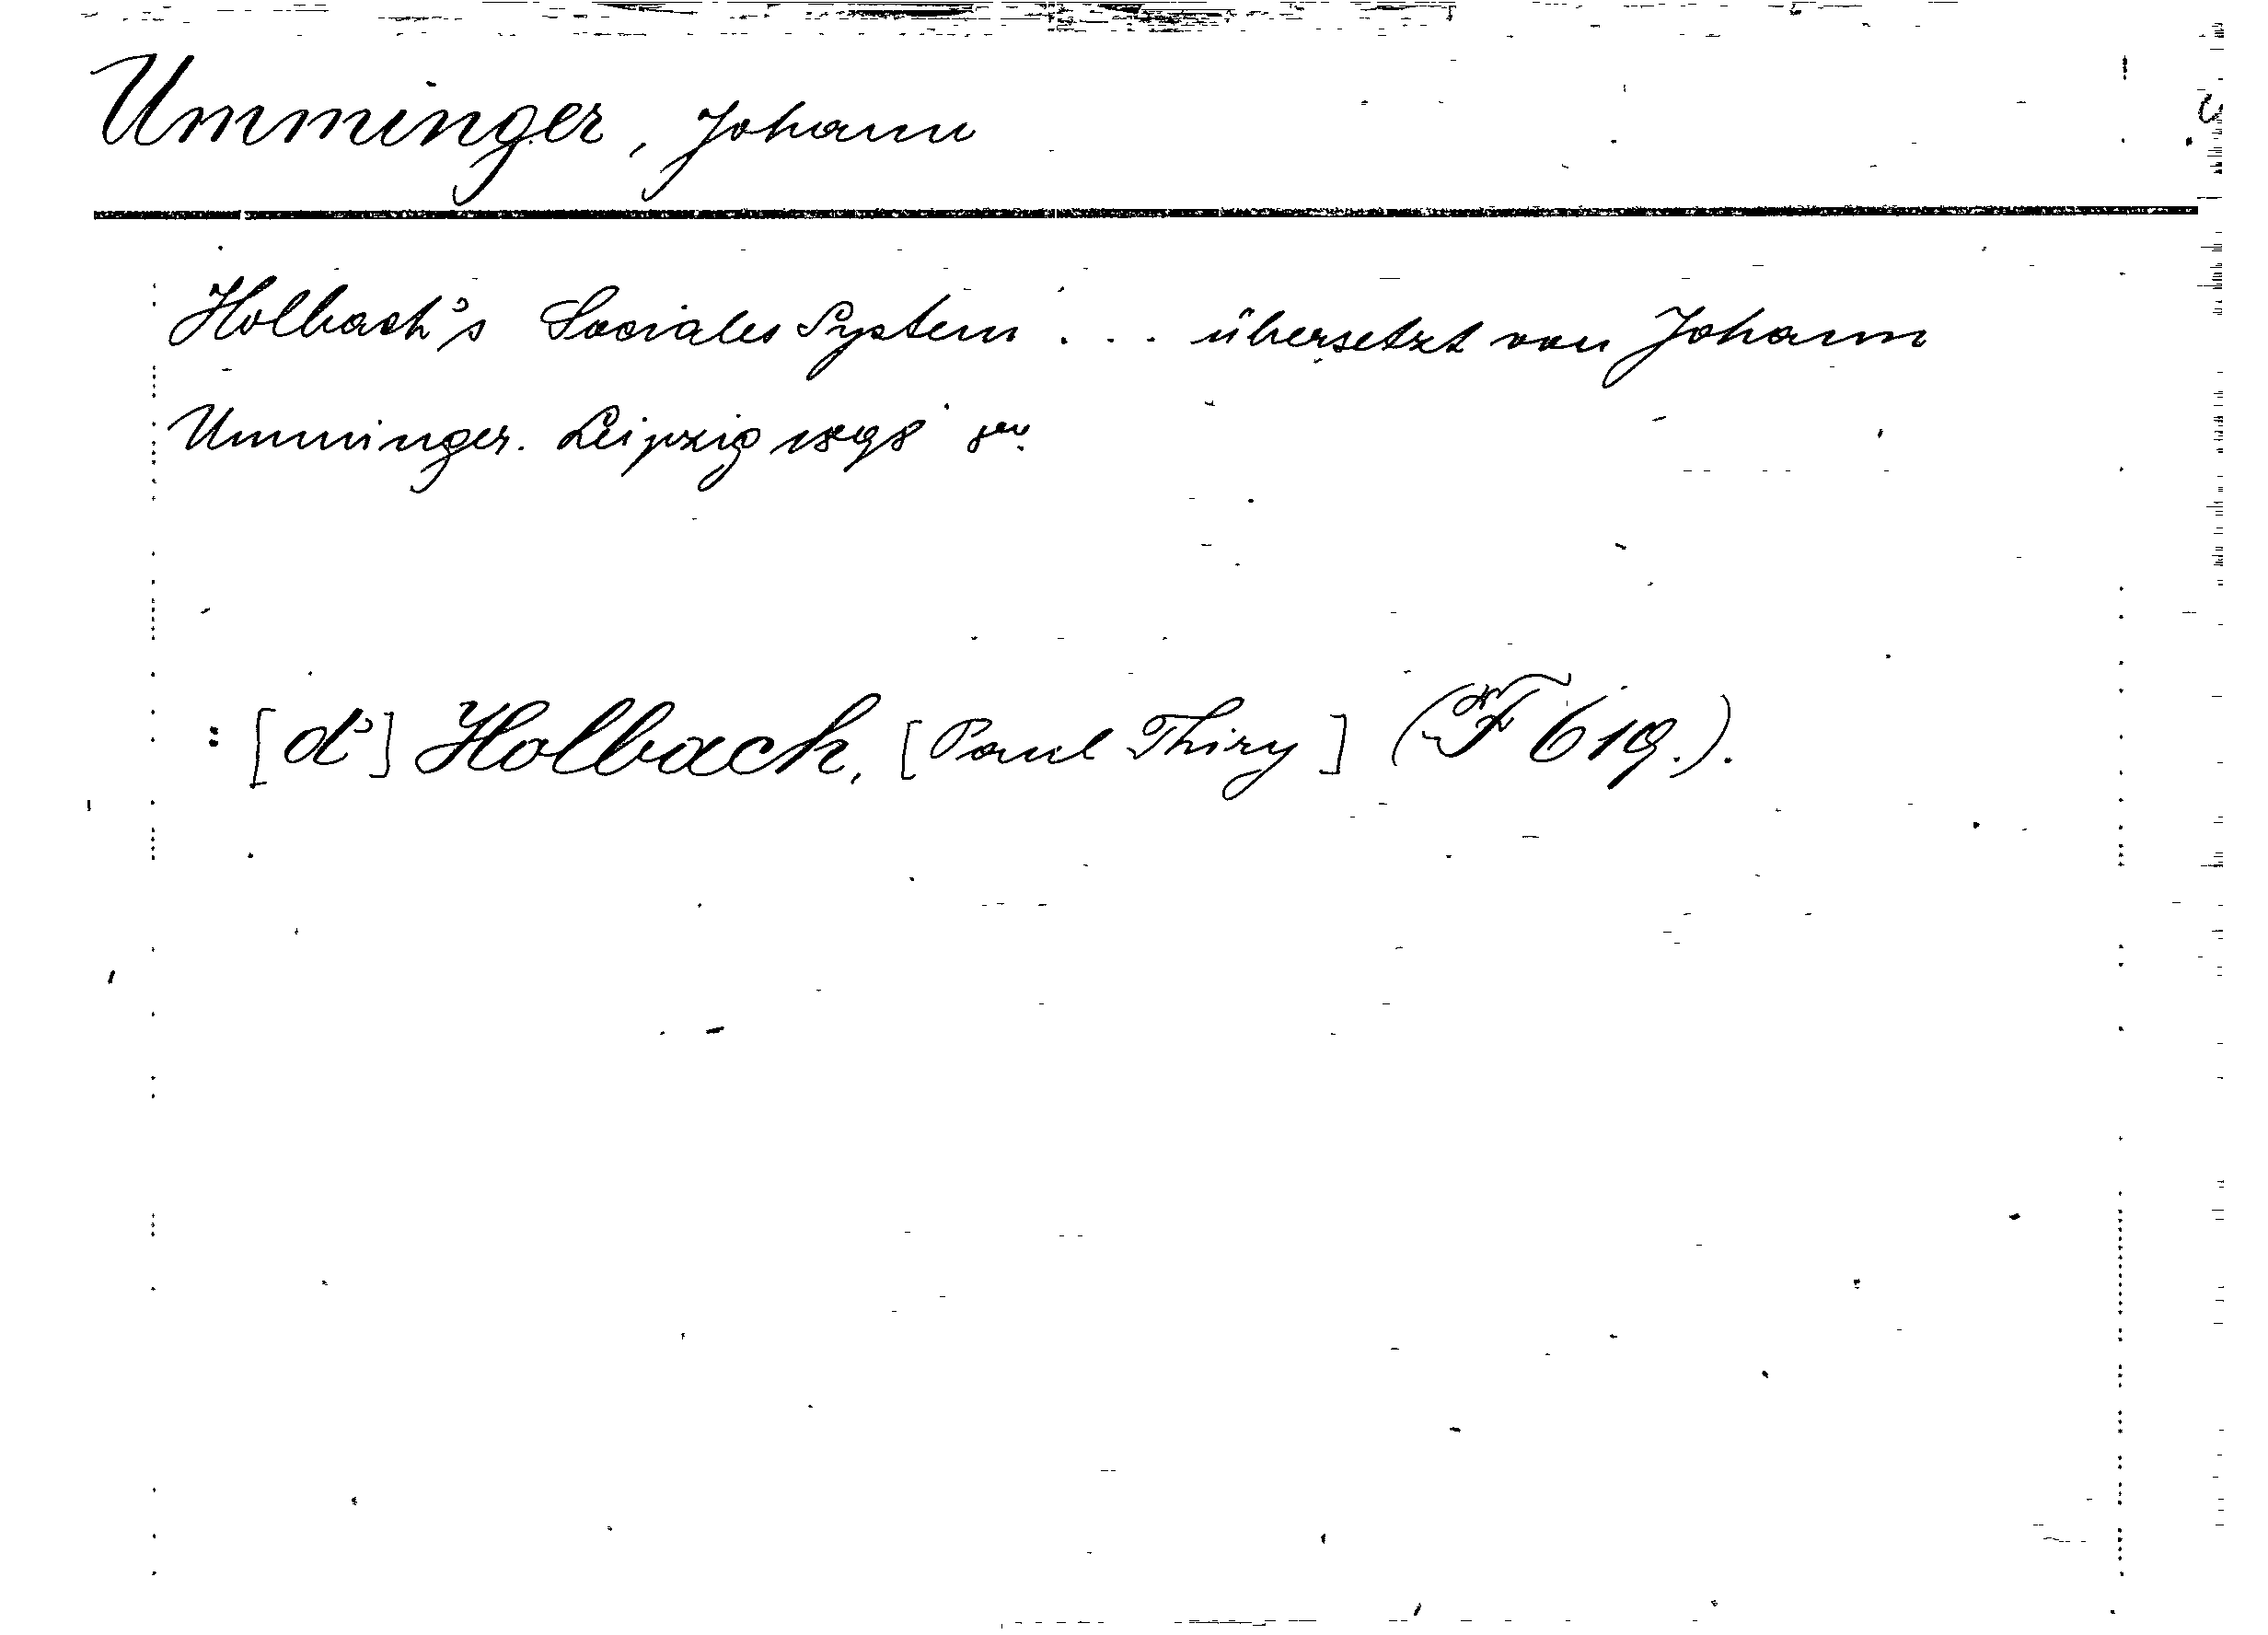 Umminger, Johann
Holbach's Sociales System ... übersetzt von Johann
Umminger. Leipzig 1898 8vo.
: [d'] Holbach, [Paul Thiry] (F 619.).